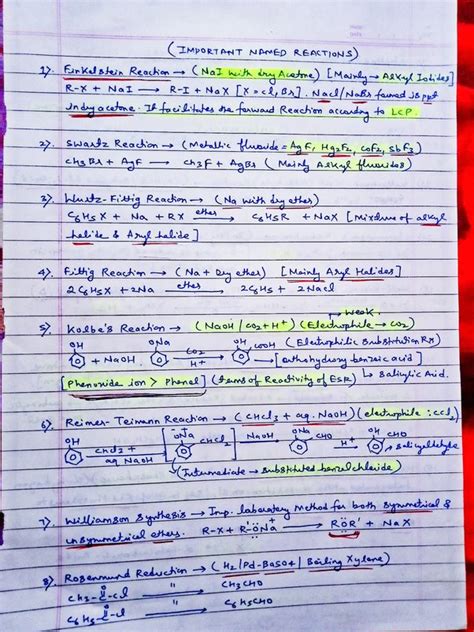 (IMPORTANT NAMED REACTIONS)
1). Finkelstein Reaction → (NaI with dry Acetone) [Mainly → Alkyl Iodides]
R-X + NaI → R-I + NaX [X = Cl, Br]. NaCl/NaBr formed is ppt
in dry acetone. It facilitates the forward Reaction according to LCP.
2). Swartz Reaction → (Metallic fluoride = AgF, Hg2F2, CoF2, SbF3)
CH3Br + AgF → CH3F + AgBr (Mainly Alkyl fluorides)
3). Wurtz-Fittig Reaction → (Na with dry ether)
C6H5X + Na + RX ether→ C6H5R + NaX [Mixture of alkyl
halide & Aryl halide]
4). Fittig Reaction → (Na + Dry ether) [Mainly Aryl Halides]
2C6H5X + 2Na ether→ 2C6H5 + 2NaCl
→ weak.
5). Kolbe's Reaction → (NaOH/CO2+H+) (Electrophile → CO2)
OH ONa OH COOH (Electrophilic Substitution Rxn)
+ NaOH → CO2 H+ → [orthohydroxy benzoic acid]
[Phenoxide ion > Phenol] (terms of Reactivity of ESR) ↳ Salicylic Acid.
6). Reimer-Teimann Reaction → (CHCl3 + aq. NaOH) (electrophile :CCl2)
OH ONa CHCl2 NaOH ONa CHO H+ OH CHO
CHCl3 + aq NaOH → Salicyldehyde
(Intermediate → Substituted benzal chloride)
7). Williamson Synthesis → Imp. laboratory Method for both symmetrical &
unsymmetrical ethers. R-X + R-ÖNa+ → RÖR' + NaX
8). Rosenmund Reduction → (H2/Pd-BaSO4/Boiling Xylene)
CH3-C-Cl " → CH3CHO
O
C6H5-C-Cl " → C6H5CHO